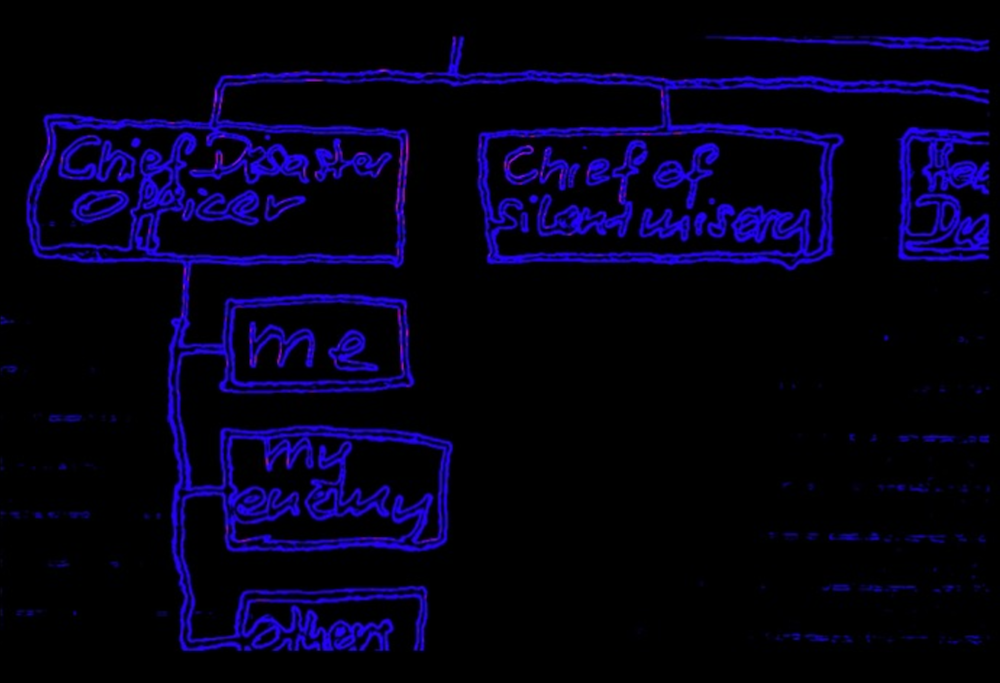 Chief Disaster
Officer
Chief of
silent misery
me
my
enemy
others